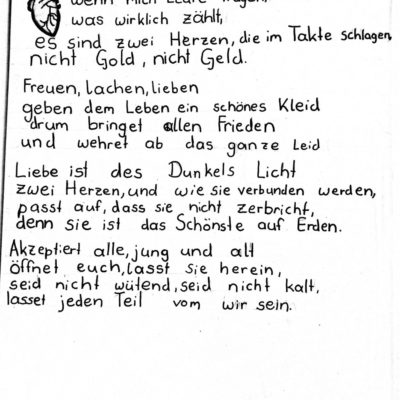 wenn mich Leute fragen,
was wirklich zählt,
es sind zwei Herzen, die im Takte schlagen,
nicht Gold, nicht Geld.
Freuen, lachen, lieben
geben dem Leben ein schönes Kleid
drum bringet allen Frieden
und wehret ab das ganze Leid
Liebe ist des Dunkels Licht
zwei Herzen, und wie sie verbunden werden,
passt auf, dass sie nicht zerbricht,
denn sie ist das Schönste auf Erden.
Akzeptiert alle, jung und alt
öffnet euch, lasst sie herein,
seid nicht wütend, seid nicht kalt,
lasset jeden Teil vom wir sein.